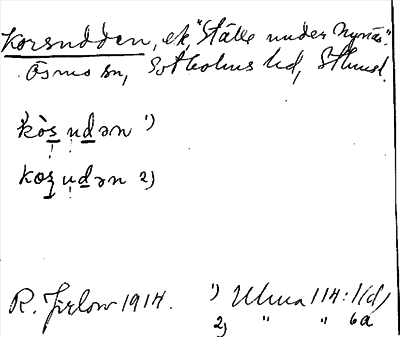 Korsudden, ek, "ställe under Nynäs".
Ösmo sn, Sotholms hd, Sthmsl.
kòs̱ ud̲ən ¹)
koʂ ud̲ən 2)
R. Jirlow 1914. ¹) Ulma 114:1(d)
2) " " 6a